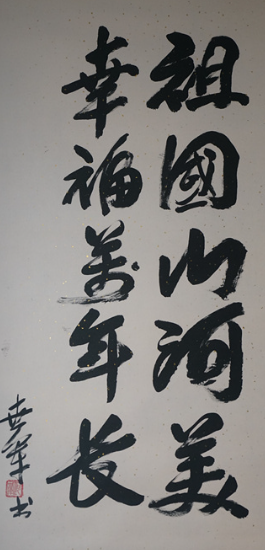 祖國山河美
幸福萬年长